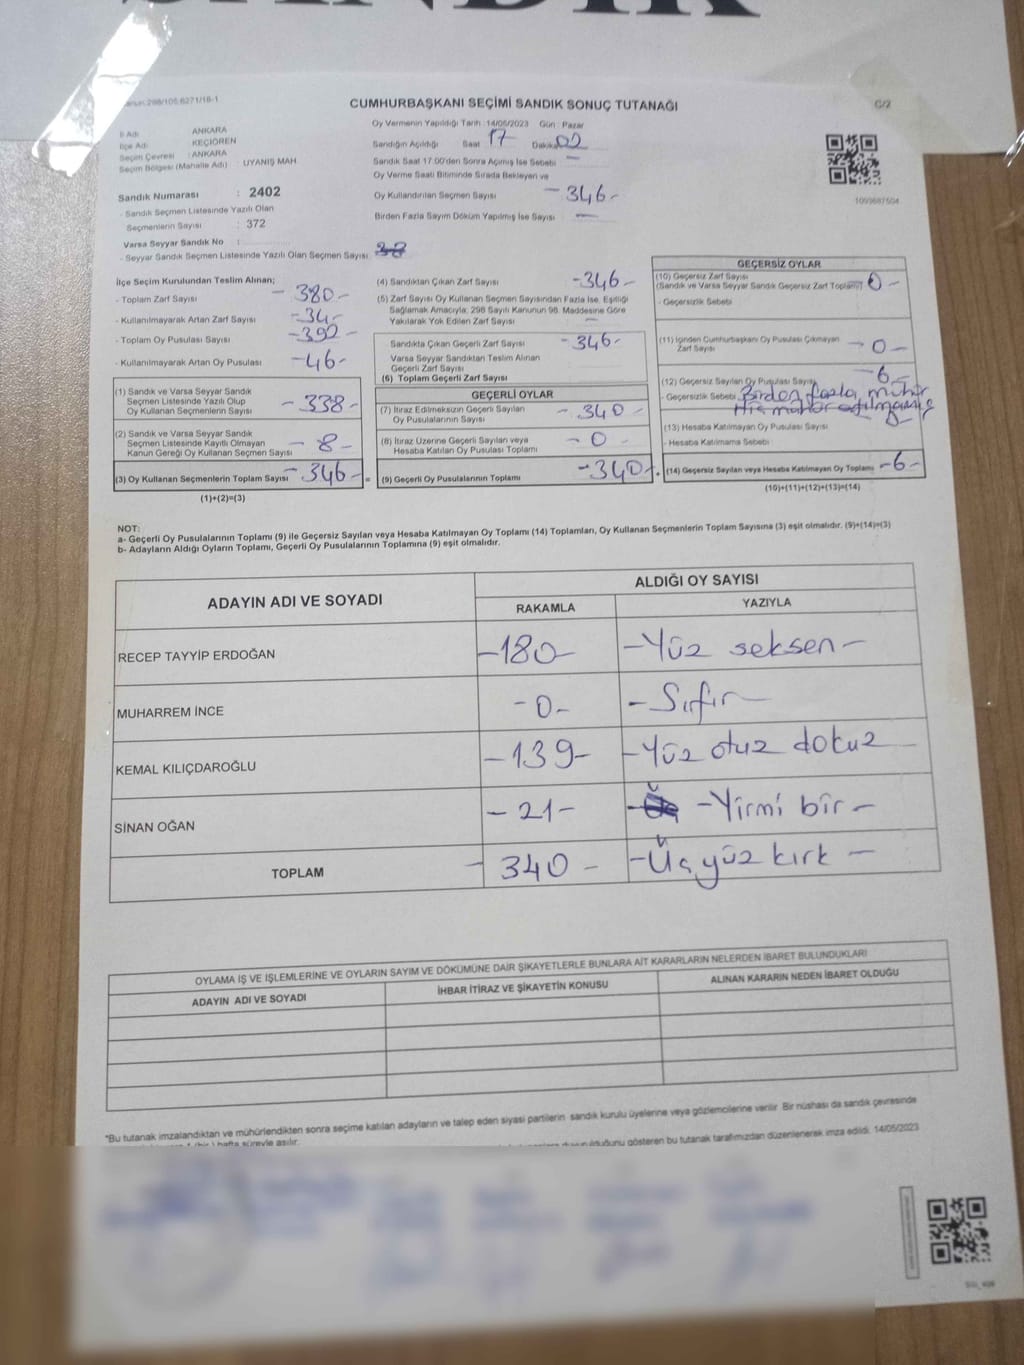 SANDIK
CUMHURBAŞKANI SEÇİMİ SANDIK SONUÇ TUTANAĞI
C/2
İl Adı : ANKARA
İlçe Adı : KEÇİÖREN
Seçim Çevresi : ANKARA
Seçim Bölgesi (Mahalle Adı) : UYANIŞ MAH
Sandık Numarası : 2402
- Sandık Seçmen Listesinde Yazılı Olan
Seçmenlerin Sayısı : 372
Varsa Seyyar Sandık No :
- Seyyar Sandık Seçmen Listesinde Yazılı Olan Seçmen Sayısı
Oy Vermenin Yapıldığı Tarih : 14/05/2023 Gün : Pazar
Sandığın Açıldığı Saat 17 Dakika 02
Sandık Saat 17:00'den Sonra Açılmış İse Sebebi —
Oy Verme Saati Bitiminde Sırada Bekleyen ve
Oy Kullandırılan Seçmen Sayısı - 346 -
Birden Fazla Sayım Döküm Yapılmış İse Sayısı —
1093687504
İlçe Seçim Kurulundan Teslim Alınan;
- Toplam Zarf Sayısı - 380 -
- Kullanılmayarak Artan Zarf Sayısı - 34 -
- Toplam Oy Pusulası Sayısı - 392 -
- Kullanılmayarak Artan Oy Pusulası - 46 -
(1) Sandık ve Varsa Seyyar Sandık
Seçmen Listesinde Yazılı Olup
Oy Kullanan Seçmenlerin Sayısı - 338 -
(2) Sandık ve Varsa Seyyar Sandık
Seçmen Listesinde Kayıtlı Olmayan
Kanun Gereği Oy Kullanan Seçmen Sayısı - 8 -
(3) Oy Kullanan Seçmenlerin Toplam Sayısı - 346 - =
(1)+(2)=(3)
(4) Sandıktan Çıkan Zarf Sayısı - 346 -
(5) Zarf Sayısı Oy Kullanan Seçmen Sayısından Fazla İse, Eşitliği
Sağlamak Amacıyla; 298 Sayılı Kanunun 98. Maddesine Göre
Yakılarak Yok Edilen Zarf Sayısı —
- Sandıkta Çıkan Geçerli Zarf Sayısı - 346 -
Varsa Seyyar Sandıktan Teslim Alınan
Geçerli Zarf Sayısı
(6) Toplam Geçerli Zarf Sayısı
GEÇERLİ OYLAR
(7) İtiraz Edilmeksizin Geçerli Sayılan
Oy Pusulalarının Sayısı - 340 -
(8) İtiraz Üzerine Geçerli Sayılan veya
Hesaba Katılan Oy Pusulası Toplamı - 0 -
(9) Geçerli Oy Pusulalarının Toplamı - 340 - +
GEÇERSİZ OYLAR
(10) Geçersiz Zarf Sayısı
(Sandık ve Varsa Seyyar Sandık Geçersiz Zarf Toplamı) 0 -
- Geçersizlik Sebebi
(11) İçinden Cumhurbaşkanı Oy Pusulası Çıkmayan
Zarf Sayısı - 0 -
(12) Geçersiz Sayılan Oy Pusulası Sayısı - 6 -
- Geçersizlik Sebebi Birden fazla mühür
(13) Hesaba Katılmayan Oy Pusulası Sayısı - 0 -
- Hesaba Katılmama Sebebi
(14) Geçersiz Sayılan veya Hesaba Katılmayan Oy Toplamı - 6 -
(10)+(11)+(12)+(13)=(14)
NOT:
a- Geçerli Oy Pusulalarının Toplamı (9) ile Geçersiz Sayılan veya Hesaba Katılmayan Oy Toplamı (14) Toplamları, Oy Kullanan Seçmenlerin Toplam Sayısına (3) eşit olmalıdır. (9)+(14)=(3)
b- Adayların Aldığı Oyların Toplamı, Geçerli Oy Pusulalarının Toplamına (9) eşit olmalıdır.
ADAYIN ADI VE SOYADI
ALDIĞI OY SAYISI
RAKAMLA YAZIYLA
RECEP TAYYİP ERDOĞAN - 180 - - Yüz seksen -
MUHARREM İNCE - 0 - - Sıfır -
KEMAL KILIÇDAROĞLU - 139 - - Yüz otuz dokuz
SİNAN OĞAN - 21 - - Yirmi bir -
TOPLAM - 340 - - Üç yüz kırk -
OYLAMA İŞ VE İŞLEMLERİNE VE OYLARIN SAYIM VE DÖKÜMÜNE DAİR ŞİKAYETLERLE BUNLARA AİT KARARLARIN NELERDEN İBARET BULUNDUKLARI
ADAYIN ADI VE SOYADI İHBAR İTİRAZ VE ŞİKAYETİN KONUSU ALINAN KARARIN NEDEN İBARET OLDUĞU
*Bu tutanak imzalandıktan ve mühürlendikten sonra seçime katılan adayların ve talep eden siyasi partilerin sandık kurulu üyelerine veya gözlemcilerine verilir. Bir nüshası da sandık çevresinde
(bir) hafta süreyle asılır.
olduğunu gösteren bu tutanak tarafımızdan düzenlenerek imza edildi. 14/05/2023